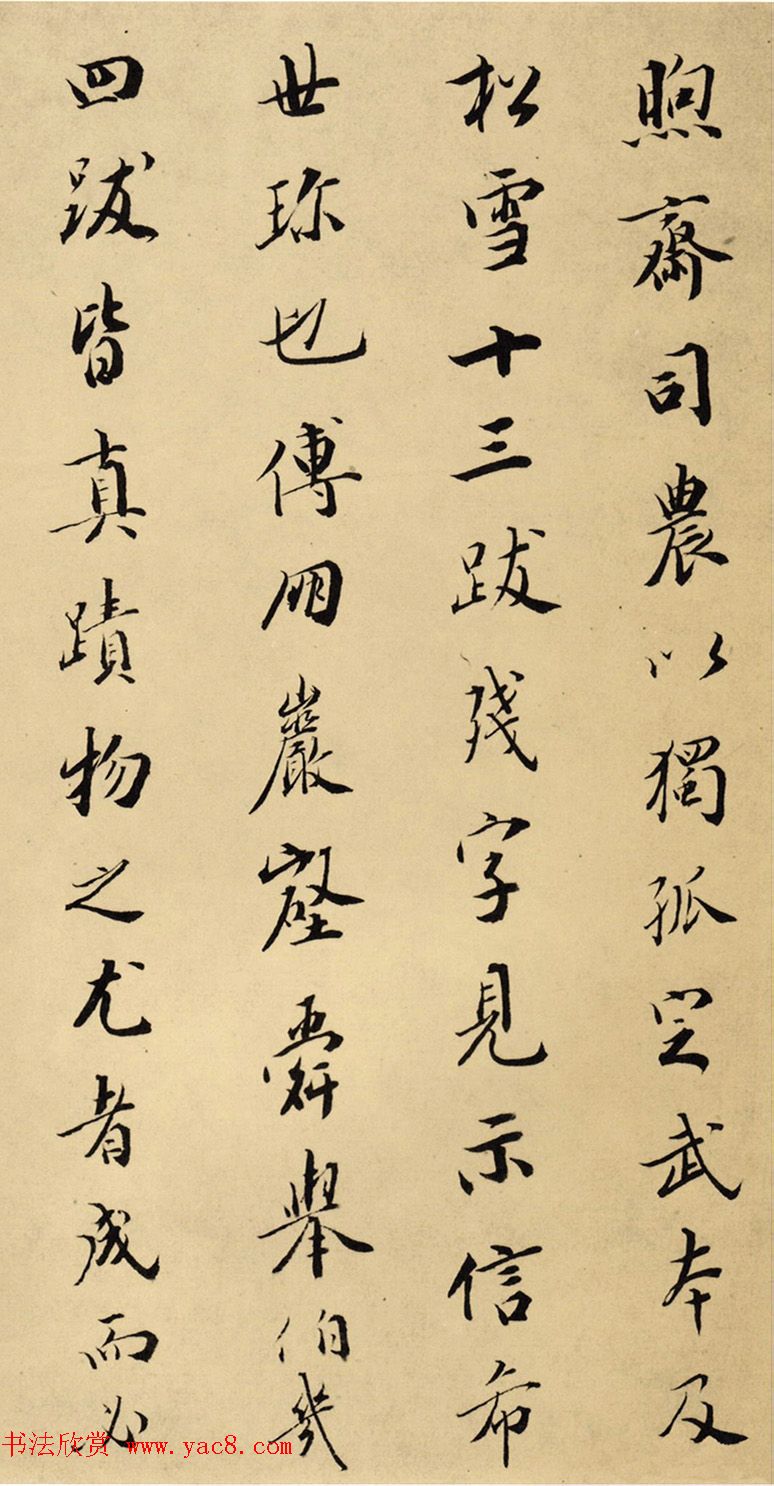 煦齋司農以獨孤定武本及
松雪十三跋殘字見示信希
世珎也傅朋巖壑舜舉伯幾
四跋皆真蹟物之尤者成而必
书法欣赏 www.yac8.com